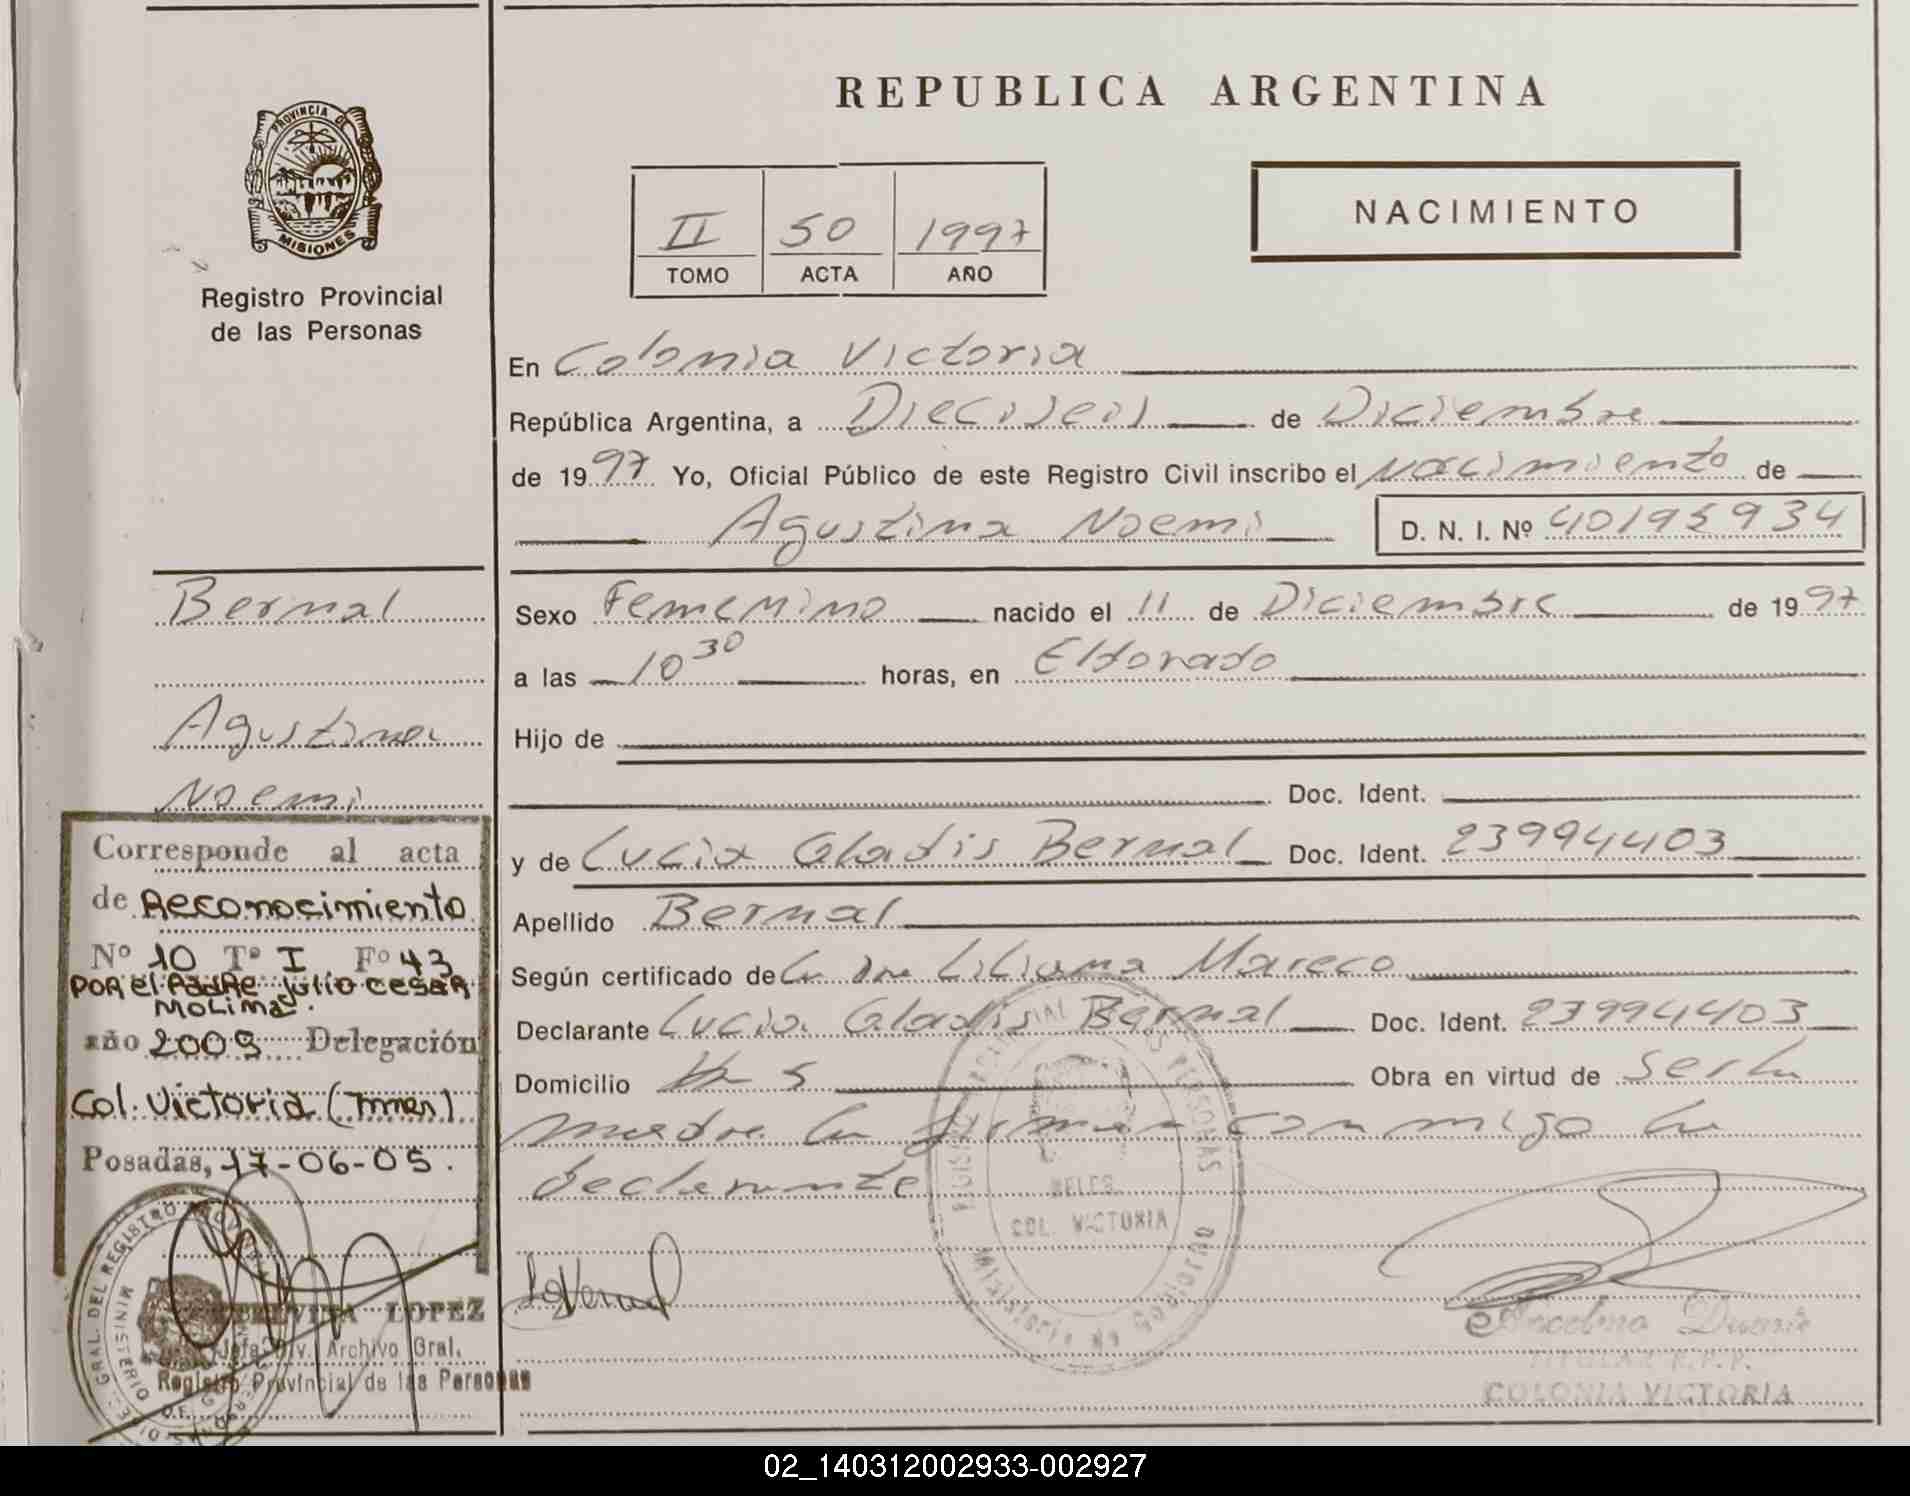 PROVINCIA DE
MISIONES
Registro Provincial
de las Personas
REPUBLICA ARGENTINA
II 50 1997
TOMO ACTA AÑO
NACIMIENTO
En Colonia Victoria
República Argentina, a Dieciseis de Diciembre
de 1997 Yo, Oficial Público de este Registro Civil inscribo el nacimiento de
Agustina Noemi D. N. I. Nº 40195934
Bernal
Agustina
Noemi
Sexo Femenino nacido el 11 de Diciembre de 1997
a las 10 30 horas, en Eldorado
Hijo de
Doc. Ident.
y de Lucia Gladis Bernal Doc. Ident. 23994403
Apellido Bernal
Según certificado de la Dra Liliana Mareco
Declarante Lucia Gladis Bernal Doc. Ident. 23994403
Domicilio Obra en virtud de ser la
madre la firma conmigo la
declarante
Corresponde al acta
de Reconocimiento
Nº 10 Tº I Fº 43
POR el Padre Julio Cesar
Molina.
año 2005 Delegación
Col. Victoria
Posadas, 17-06-05.
LOPEZ
Jefa Div. Archivo Gral.
Registro Provincial de las Personas
COL. VICTORIA
Ministerio de Gobierno
TITULAR R.P.P.
COLONIA VICTORIA
02_140312002933-002927